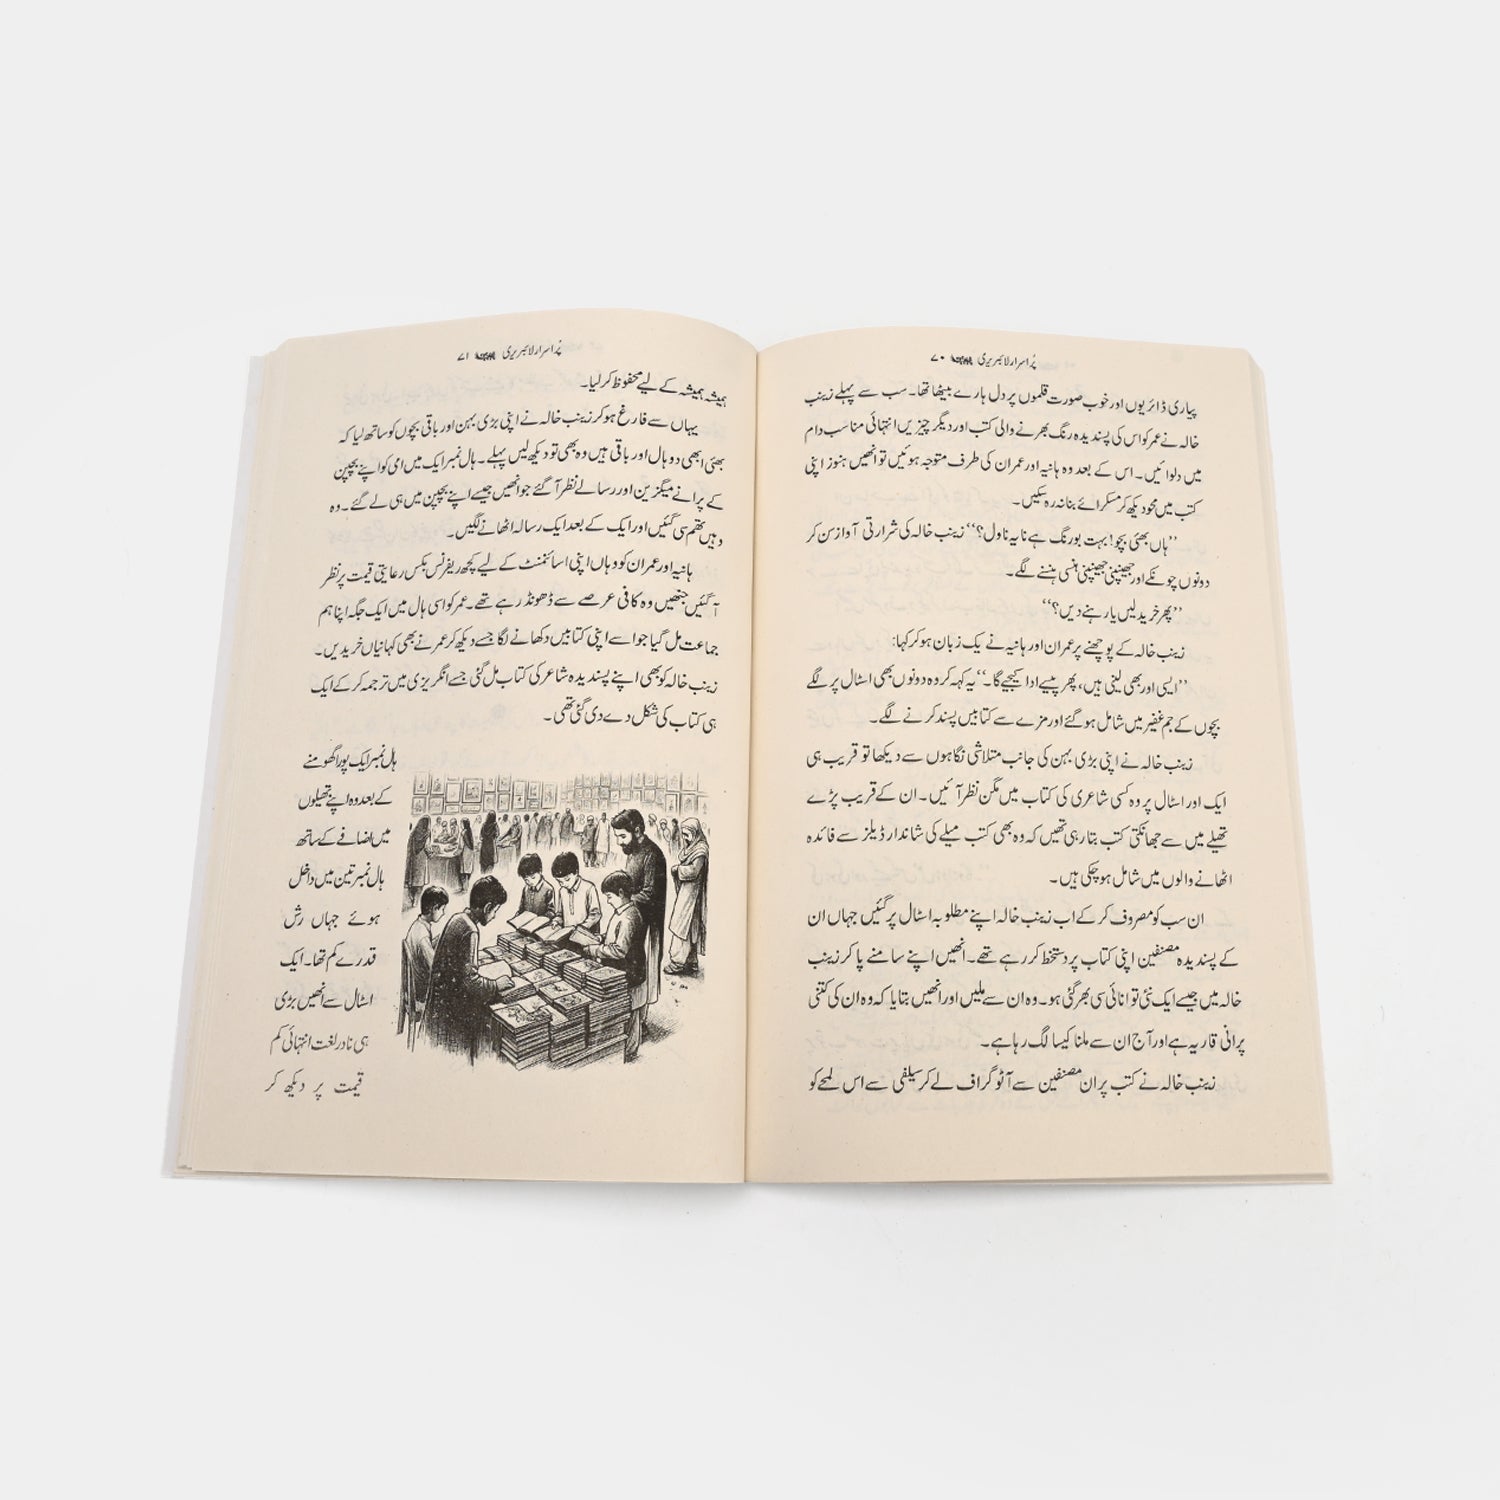 پُراسرار لائبریری ۷۰
پیاری ڈائریوں اور خوب صورت قلموں پر دل ہارے بیٹھا تھا۔ سب سے پہلے زینب
خالہ نے عمر کو اس کی پسندیدہ رنگ بھرنے والی کتب اور دیگر چیزیں انتہائی مناسب دام
میں دلوائیں۔ اس کے بعد وہ ہانیہ اور عمران کی طرف متوجہ ہوئیں تو انھیں ہنوز اپنی
کتب میں محو دیکھ کر مسکرائے بنا نہ رہ سکیں۔
’’ہاں بھئی بچو! بہت بورنگ ہے نا یہ ناول؟‘‘ زینب خالہ کی شرارتی آواز سن کر
دونوں چونکے اور جھینپی جھینپی ہنسی ہنسنے لگے۔
’’پھر خرید لیں یا رہنے دیں؟‘‘
زینب خالہ کے پوچھنے پر عمران اور ہانیہ نے یک زبان ہو کر کہا:
’’ایسی اور بھی لینی ہیں، پھر پیسے ادا کیجیے گا۔‘‘ یہ کہہ کر وہ دونوں بھی اسٹال پر لگے
بچوں کے جم غفیر میں شامل ہو گئے اور مزے سے کتابیں پسند کرنے لگے۔
زینب خالہ نے اپنی بڑی بہن کی جانب متلاشی نگاہوں سے دیکھا تو قریب ہی
ایک اور اسٹال پر وہ کسی شاعری کی کتاب میں مگن نظر آئیں۔ ان کے قریب پڑے
تھیلے میں سے جھانکتی کتب بتا رہی تھیں کہ وہ بھی کتب میلے کی شاندار ڈیلز سے فائدہ
اٹھانے والوں میں شامل ہو چکی ہیں۔
ان سب کو مصروف کر کے اب زینب خالہ اپنے مطلوبہ اسٹال پر گئیں جہاں ان
کے پسندیدہ مصنفین اپنی کتاب پر دستخط کر رہے تھے۔ انھیں اپنے سامنے پا کر زینب
خالہ میں جیسے ایک نئی توانائی سی بھر گئی ہو۔ وہ ان سے ملیں اور انھیں بتایا کہ وہ ان کی کتنی
پرانی قاریہ ہے اور آج ان سے ملنا کیسا لگ رہا ہے۔
زینب خالہ نے کتب پر ان مصنفین سے آٹو گراف لے کر سیلفی سے اس لمحے کو
پُراسرار لائبریری ۷۱
ہمیشہ ہمیشہ کے لیے محفوظ کر لیا۔
یہاں سے فارغ ہو کر زینب خالہ نے اپنی بڑی بہن اور باقی بچوں کو ساتھ لیا کہ
بھئی ابھی دو ہال اور باقی ہیں وہ بھی تو دیکھ لیں پہلے۔ ہال نمبر ایک میں امی کو اپنے بچپن
کے پرانے میگزین اور رسالے نظر آ گئے جو انھیں جیسے اپنے بچپن میں ہی لے گئے۔ وہ
وہیں تھم سی گئیں اور ایک کے بعد ایک رسالہ اٹھانے لگیں۔
ہانیہ اور عمران کو وہاں اپنی اسائنمنٹ کے لیے کچھ ریفرنس بکس رعایتی قیمت پر نظر
آ گئیں جنھیں وہ کافی عرصے سے ڈھونڈ رہے تھے۔ عمر کو اسی ہال میں ایک جگہ اپنا ہم
جماعت مل گیا جو اسے اپنی کتابیں دکھانے لگا جسے دیکھ کر عمر نے بھی کہانیاں خریدیں۔
زینب خالہ کو بھی اپنے پسندیدہ شاعر کی کتاب مل گئی جسے انگریزی میں ترجمہ کر کے ایک
ہی کتاب کی شکل دے دی گئی تھی۔
ہال نمبر ایک پورا گھومنے
کے بعد وہ اپنے تھیلوں
میں اضافے کے ساتھ
ہال نمبر تین میں داخل
ہوئے جہاں رش
قدرے کم تھا۔ ایک
اسٹال سے انھیں بڑی
ہی نادر لغت انتہائی کم
قیمت پر دیکھ کر